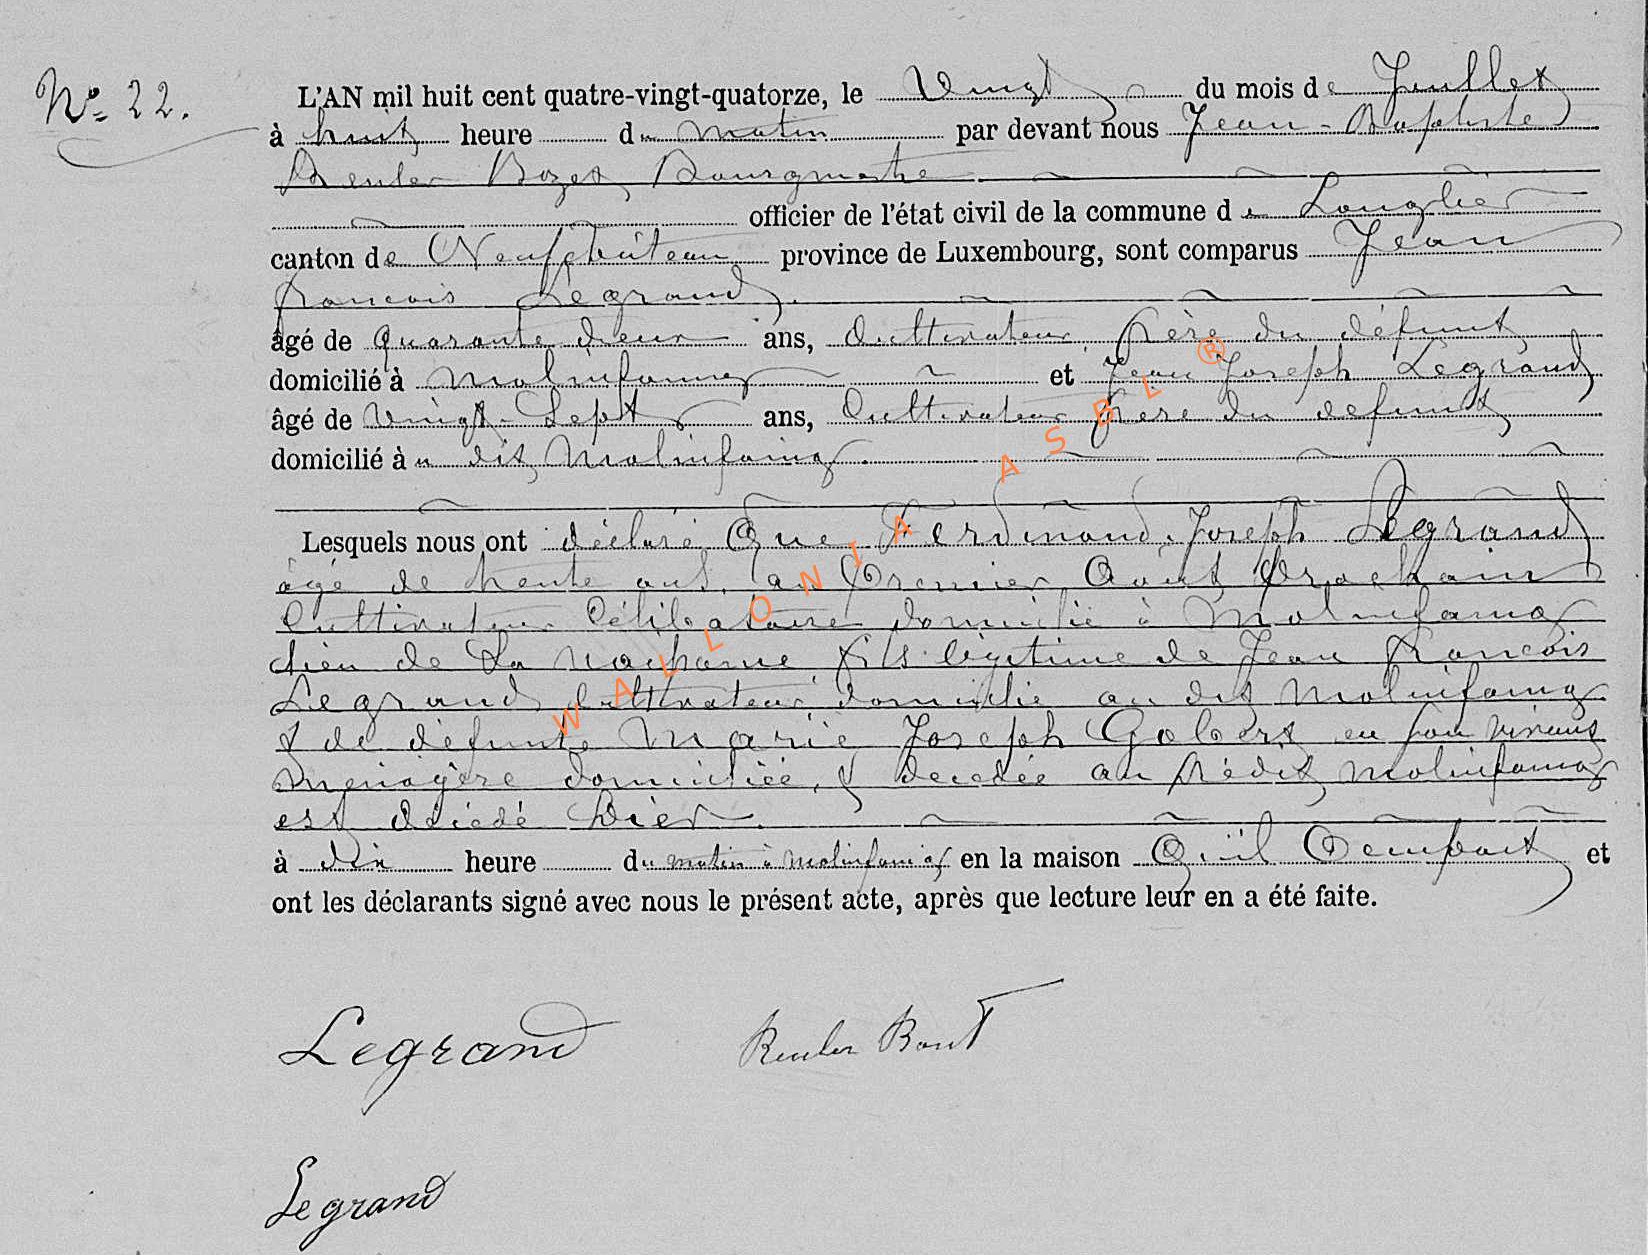 N° 22.
L'AN mil huit cent quatre-vingt-quatorze, le Vingt du mois de Juillet
à huit heure du matin par devant nous Jean-Baptiste
Reuler Bozet Bourgmestre
officier de l'état civil de la commune de Longlier
canton de Neufchâteau province de Luxembourg, sont comparus Jean
francois Legrand
âgé de quarante deux ans, Cultivateur, frère du défunt
domicilié à Molinfaing et Jean Joseph Legrand
âgé de Vingt-Sept ans, Cultivateur frere du défunt
domicilié à u dit Molinfaing
Lesquels nous ont déclaré Que Ferdinand Joseph Legrand
âgé de trente ans, au Premier Août Prochain
Cultivateur Célibataire domicilié à Molinfaing
de La fils légitime de Jean francois
Legrand Cultivateur domicilié au dit Molinfaing
& de défunte Marie Joseph Gobert en son vivant
menagère domiciliée, & decedée au prédit Molinfaing
est décédé hier
à dix heure du matin à Molinfaing en la maison Qu'il Occupait et
ont les déclarants signé avec nous le présent acte, après que lecture leur en a été faite.
Legrand Reuler
Legrand
WALLONIA ASBL ®